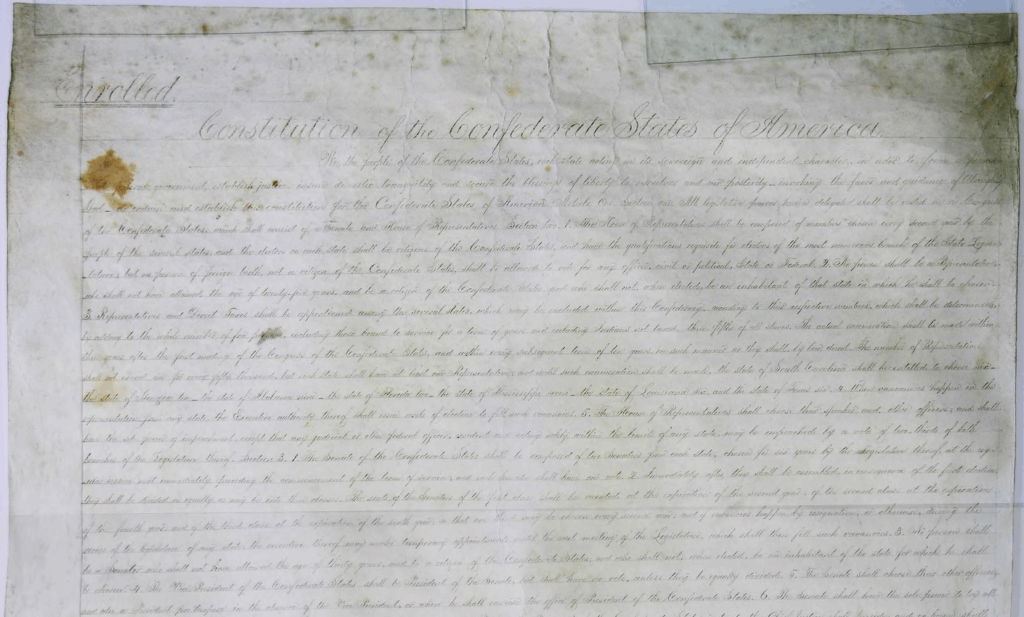 Enrolled.
Constitution of the Confederate States of America.
We, the people of the Confederate States, each state acting in its sovereign and independent character, in order to form a
government, establish justice, insure domestic tranquility and secure the blessings of liberty to ourselves and our posterity – invoking the favor and guidance of Almighty
God – do ordain and establish this constitution for the Confederate States of America. Article One. Section one. All legislative powers herein delegated shall be vested in a Congress
of the Confederate States, which shall consist of a Senate and House of Representatives. Section two. 1. The House of Representatives shall be composed of members chosen every second year by the
people of the several states; and the electors in each state shall be citizens of the Confederate States, and have the qualifications requisite for electors of the most numerous branch of the State Legis-
lature; but no person of foreign birth, not a citizen of the Confederate States, shall be allowed to vote for any officer, civil or political, State or Federal. 2. No person shall be a Representative,
who shall not have attained the age of twenty-five years, and be a citizen of the Confederate States, and who shall not, when elected, be an inhabitant of that state in which he shall be chosen.
3. Representatives and Direct Taxes shall be apportioned among the several states, which may be included within this Confederacy, according to their respective numbers, which shall be determined
by adding to the whole number of free persons, including those bound to service for a term of years, and excluding Indians not taxed, three fifths of all slaves. The actual enumeration shall be made within
three years after the first meeting of the Congress of the Confederate States, and within every subsequent term of ten years, in such manner as they shall by law direct. The number of Representatives
shall not exceed one for every fifty thousand, but each state shall have at least one Representative; and until such enumeration shall be made, the state of South Carolina shall be entitled to choose six –
the state of Georgia ten – the state of Alabama nine – the state of Florida two – the state of Mississippi seven – the state of Louisiana six, and the state of Texas six. 4. When vacancies happen in the
representation from any state, the Executive authority thereof shall issue writs of election to fill such vacancies. 5. The House of Representatives shall choose their speaker and other officers; and shall
have the sole power of impeachment; except that any judicial or other federal officer, resident and acting solely within the limits of any state, may be impeached by a vote of two thirds of both
branches of the Legislature thereof. Section 3. 1. The Senate of the Confederate States shall be composed of two Senators from each state, chosen for six years by the Legislature thereof, at the reg-
session next immediately preceding the commencement of the term of service; and each Senator shall have one vote. 2. Immediately after they shall be assembled, in consequence of the first election,
they shall be divided as equally as may be into three classes. The seats of the Senators of the first class shall be vacated at the expiration of the second year; of the second class at the expiration
of the fourth year; and of the third class at the expiration of the sixth year; so that one third may be chosen every second year; and if vacancies happen by resignation, or otherwise, during the
recess of the legislature of any state, the executive thereof may make temporary appointments until the next meeting of the Legislature, which shall then fill such vacancies. 3. No person shall
be a Senator who shall not have attained the age of thirty years, and be a citizen of the Confederate States; and who shall not, when elected, be an inhabitant of the state for which he shall
be chosen. 4. The Vice President of the Confederate States shall be President of the Senate, but shall have no vote, unless they be equally divided. 5. The Senate shall choose their other officers;
and also a President pro tempore in the absence of the Vice President, or when he shall exercise the office of President of the Confederate States. 6. The Senate shall have the sole power to try all